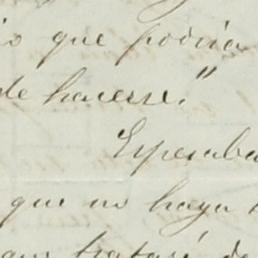 que podria
de hacerse."
Esperaba
que no haya
tratará de